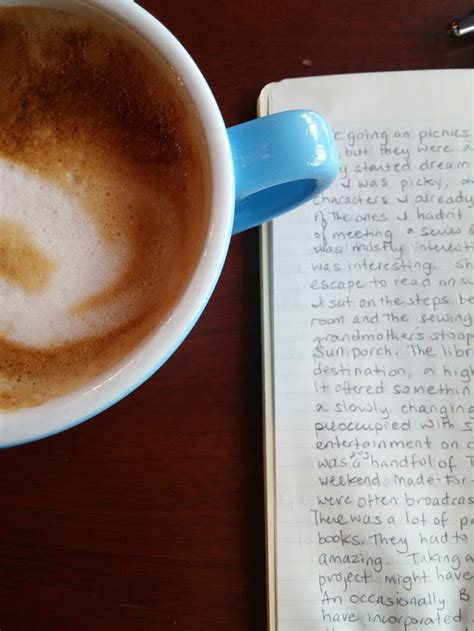 going on picnics
but they were a
started dream
I was picky,
characters I already
The ones I hadn't
of meeting a
was mostly
was interesting.
escape to read on
I sat on the steps
room and the sewing
grandmother's stoop
sun porch. The
destination, a
It offered
a slowly
preoccupied with
entertainment on
was a handful of
weekend made-for-
were often
There was a lot of
books. They had to
amazing. Taking a
project might have
An occasionally
have incorporated